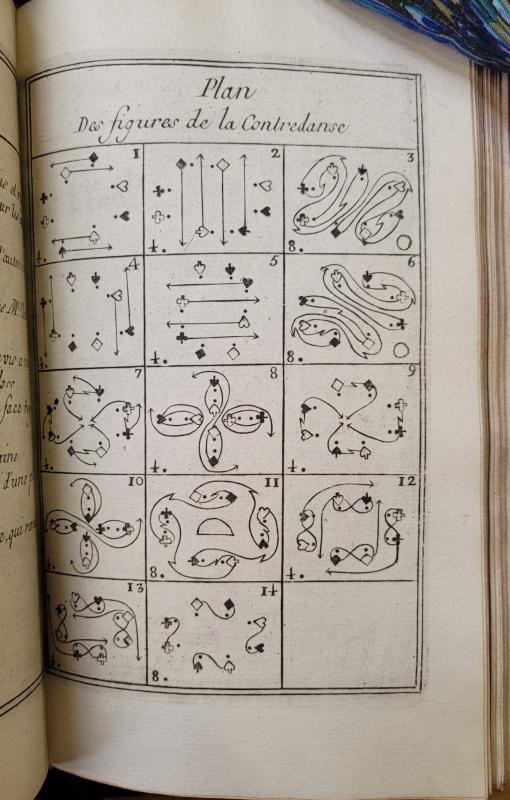 Plan
Des figures de la Contredanse
1 2 3
4. 4. 8.
4 5 6
4. 4. 8.
7 8 9
4. 4. 4.
10 11 12
4. 8. 4.
13 14
4. 8.
face
d'une
qui